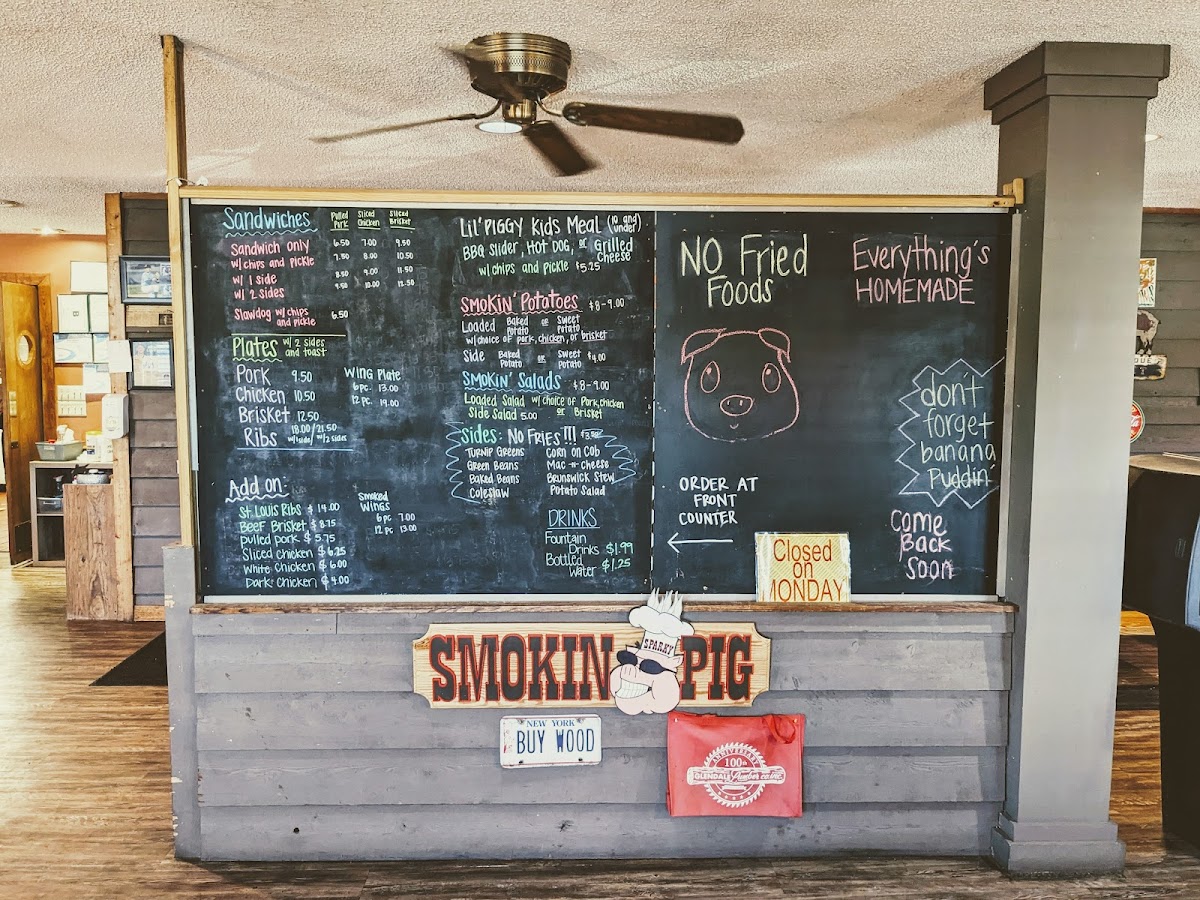 Sandwiches
Pulled Pork Sliced Chicken Sliced Brisket
Sandwich only 6.50 7.00 9.50
w/ chips and pickle 7.50 8.00 10.50
w/ 1 side 8.50 9.00 11.50
w/ 2 sides 9.50 10.00 12.50
Slawdog w/ chips and pickle 6.50
Plates w/ 2 sides and toast
Pork 9.50
Chicken 10.50
Brisket 12.50
Ribs 18.00/21.50
w/ 1 side/ w/ 2 sides
Wing Plate
6 pc. 13.00
12 pc. 19.00
Add on:
St. Louis Ribs $ 14.00
Beef Brisket $ 8.75
pulled pork $ 5.75
Sliced chicken $ 6.25
White chicken $ 6.00
Dark chicken $ 4.00
Smoked Wings
6 pc 7.00
12 pc 13.00
Lil' Piggy Kids Meal (10 and under)
BBQ Slider, Hot Dog, or Grilled Cheese
w/ chips and pickle $5.25
Smokin' Potatoes $8-9.00
Loaded Baked Potato or Sweet Potato
w/ choice of pork, chicken, or brisket
Side Baked Potato or Sweet Potato $4.00
Smokin' Salads $8-9.00
Loaded Salad w/ choice of Pork, chicken
Side Salad 5.00 or Brisket
Sides: NO FRIES!!! $3.50
Turnip Greens Corn on Cob
Green Beans Mac-n-cheese
Baked Beans Brunswick Stew
Coleslaw Potato Salad
DRINKS
Fountain Drinks $1.99
Bottled Water $1.25
NO Fried
Foods
Everything's
HOMEMADE
dont
forget
banana
Puddin'
ORDER AT
FRONT
COUNTER
Come
Back
Soon
Closed
on
MONDAY
SMOKIN PIG
SPARKY
NEW YORK
BUY WOOD
ANNIVERSARY
100th
GLENDALE Lumber co. inc.